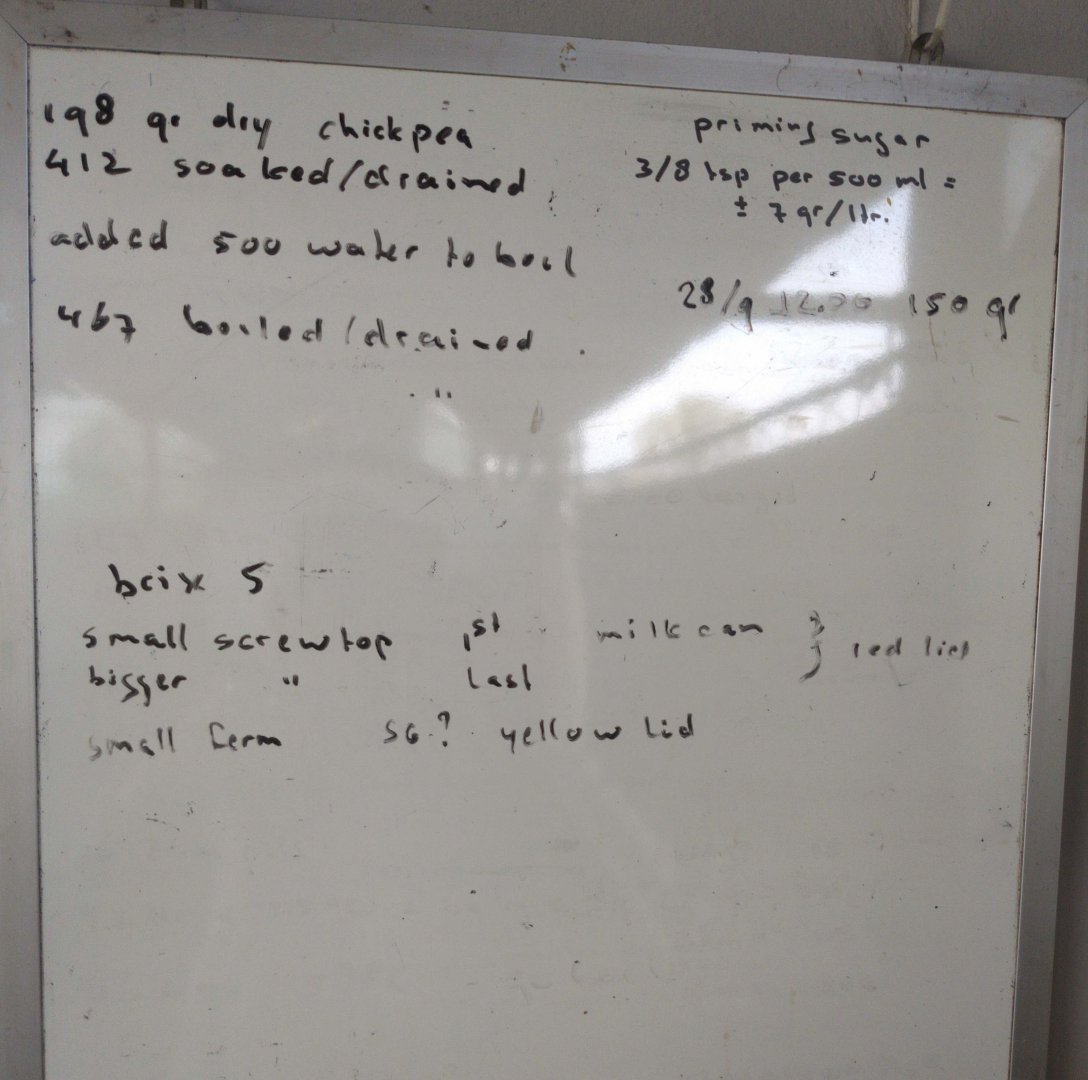 198 gr dry chickpea
412 soaked/drained
added 500 water to boil
467 boiled/drained
"
priming sugar
3/8 tsp per 500 ml =
± 7 gr/ltr.
28/9 12.00 150 gr
brix 5
small screwtop 1st milk can } red lid
bigger " last
small ferm SG? yellow lid